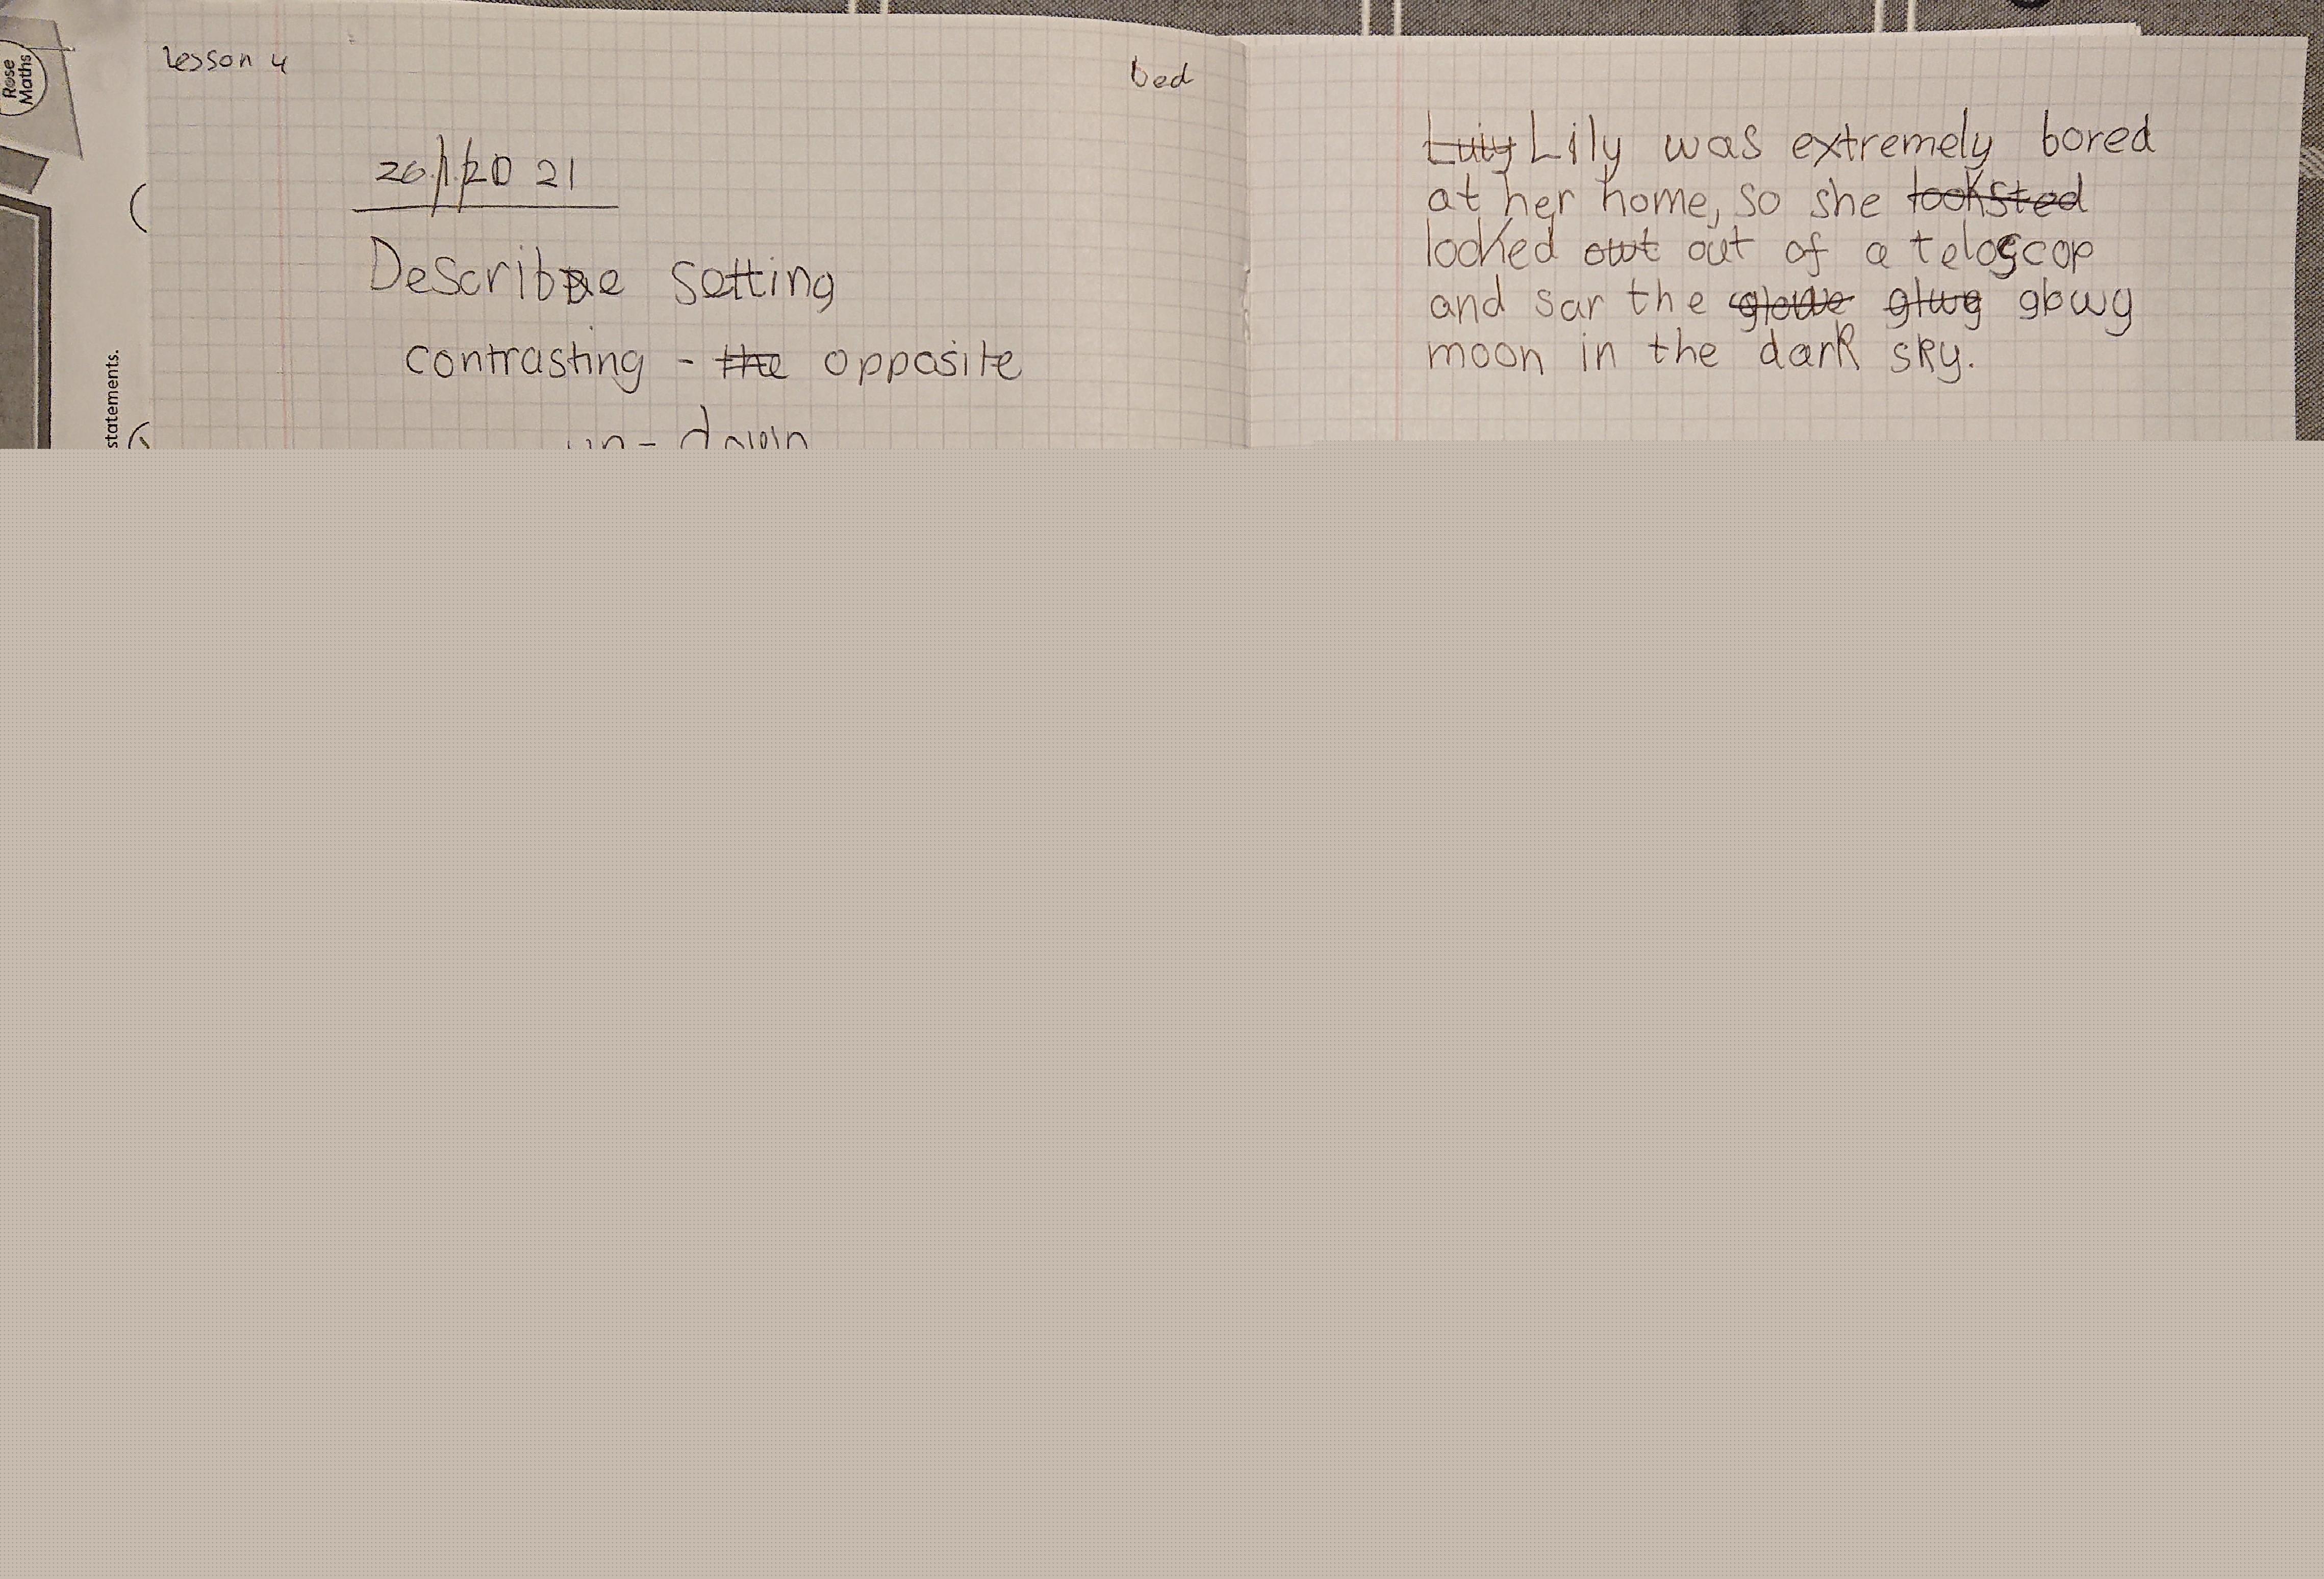 Rose
Maths
statements.
Lesson 4
bed
26/1/2021
Describe setting
contrasting - ~~the~~ opposite
Lily was extremely bored
at her home, so she
looked ~~owt~~ out of a teloscop
and sar the ~~glowe~~ ~~glwg~~ glowg
moon in the dark sky.